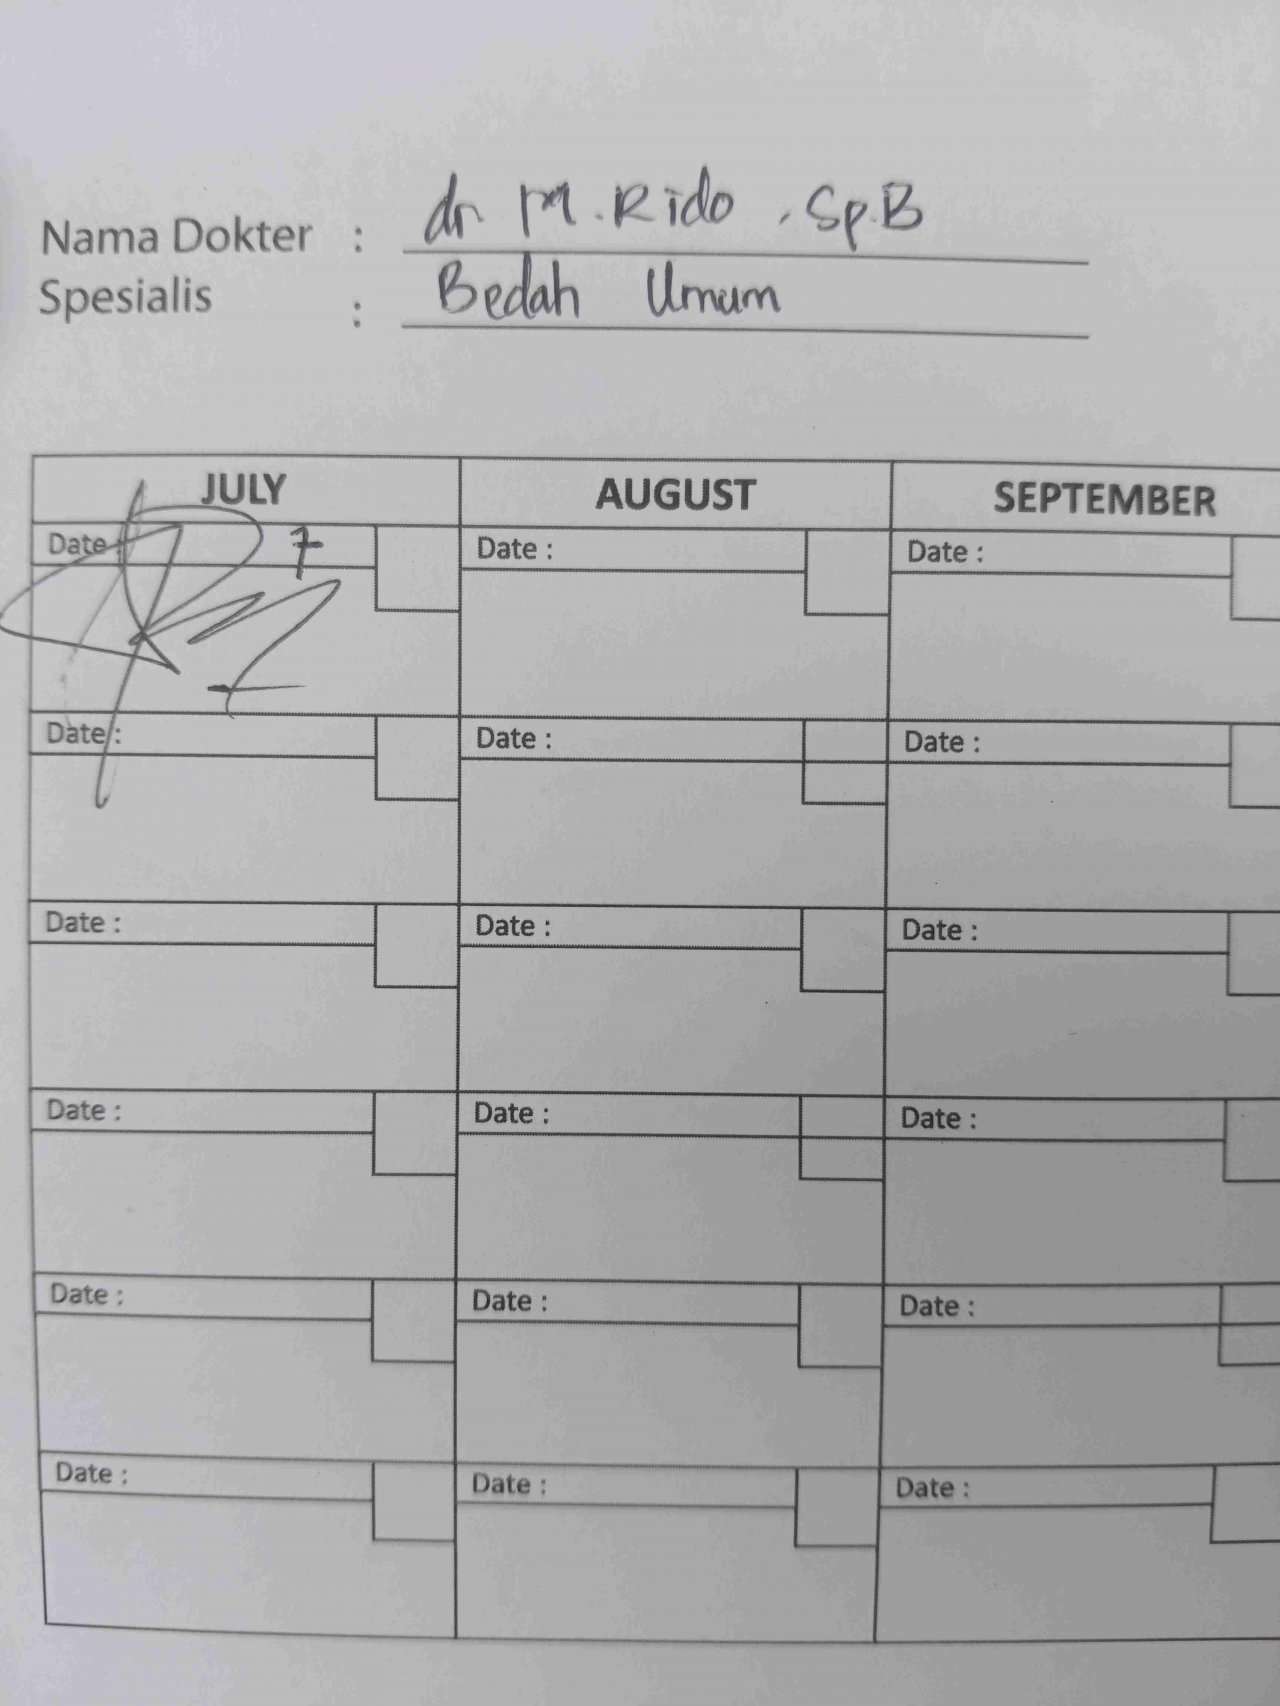 Nama Dokter : dr M. Rido, Sp.B
Spesialis : Bedah Umum
JULY AUGUST SEPTEMBER
Date : 7 Date : Date :
Date : Date : Date :
Date : Date : Date :
Date : Date : Date :
Date : Date : Date :
Date : Date : Date :